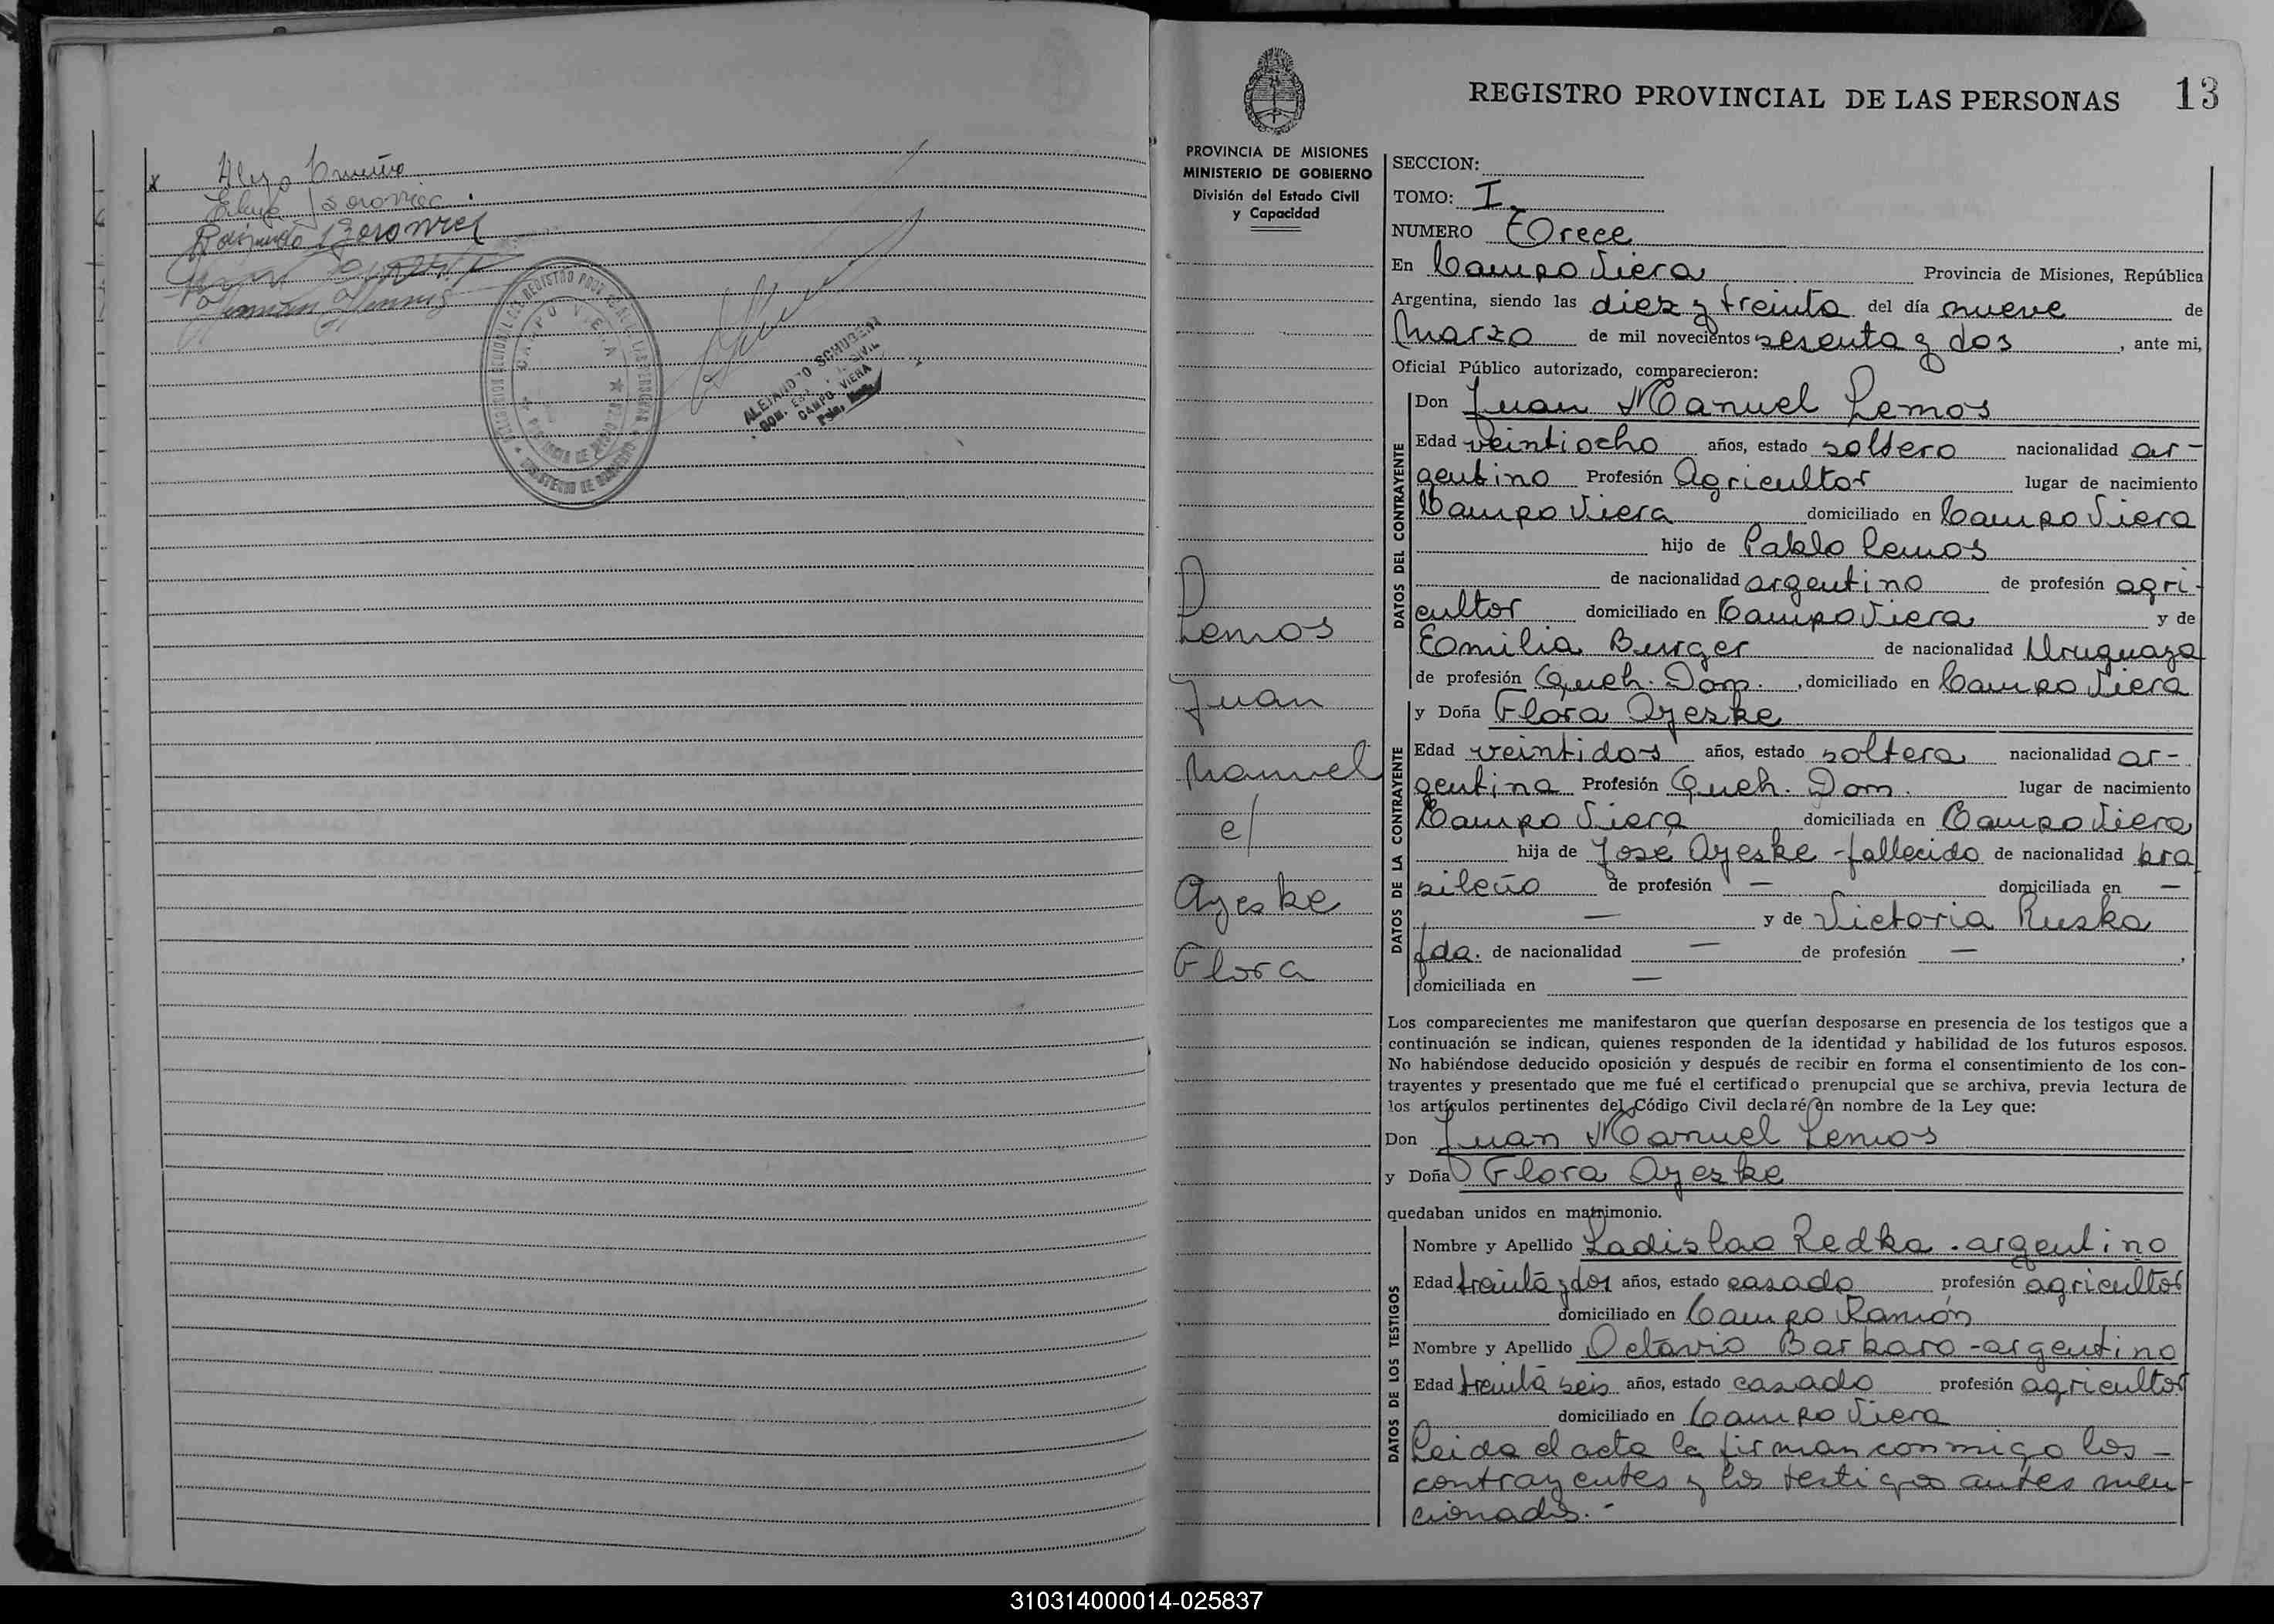 x Alejo
Raimundo
CAMPO VIERA
ALEJANDRO SCHUBERT
CAMPO VIERA
REGISTRO PROVINCIAL DE LAS PERSONAS 13
PROVINCIA DE MISIONES
MINISTERIO DE GOBIERNO
División del Estado Civil
y Capacidad
Lemos
Juan
Manuel
c/
Ayeske
Flora
SECCION:
TOMO: I
NUMERO Trece
En Campo Viera Provincia de Misiones, República
Argentina, siendo las diez y treinta del día nueve de
Marzo de mil novecientos sesenta y dos, ante mi,
Oficial Público autorizado, comparecieron:
DATOS DEL CONTRAYENTE
Don Juan Manuel Lemos
Edad veintiocho años, estado soltero nacionalidad ar-
gentino Profesión Agricultor lugar de nacimiento
Campo Viera domiciliado en Campo Viera
hijo de Pablo Lemos
de nacionalidad argentino de profesión agri-
cultor domiciliado en Campo Viera y de
Emilia Burger de nacionalidad Uruguaya
de profesión Queh. Dom., domiciliado en Campo Viera
DATOS DE LA CONTRAYENTE
y Doña Flora Ayeske
Edad veintidos años, estado soltera nacionalidad ar-
gentina Profesión Queh. Dom. lugar de nacimiento
Campo Viera domiciliada en Campo Viera
hija de José Ayeske - fallecido de nacionalidad bra
sileño de profesión — domiciliada en —
— y de Victoria Ruska
fda. de nacionalidad — de profesión —,
domiciliada en —
Los comparecientes me manifestaron que querían desposarse en presencia de los testigos que a
continuación se indican, quienes responden de la identidad y habilidad de los futuros esposos.
No habiéndose deducido oposición y después de recibir en forma el consentimiento de los con-
trayentes y presentado que me fué el certificado prenupcial que se archiva, previa lectura de
los artículos pertinentes del Código Civil declaré en nombre de la Ley que:
Don Juan Manuel Lemos
y Doña Flora Ayeske
quedaban unidos en matrimonio.
DATOS DE LOS TESTIGOS
Nombre y Apellido Ladislao Redka - argentino
Edad treinta y dos años, estado casado profesión agricultor
domiciliado en Campo Ramón
Nombre y Apellido Octavio Barbaro - argentino
Edad treinta seis años, estado casado profesión agricultor
domiciliado en Campo Viera
Leida el acta la firman conmigo los -
contrayentes y los testigos antes men-
cionados.-
310314000014-025837